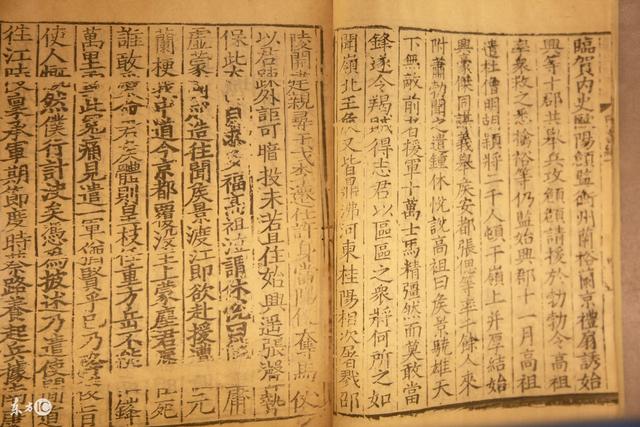 臨賀內史歐陽頠監衡州蘭裕蘭京禮扇誘始
興等十郡共舉兵攻頠頠請援於勃勃令高祖
率衆救之悉擒裕等仍監始興郡十一月高祖
遣杜僧明胡頴將二千人頓于嶺上并厚結始
興豪傑同謀義舉侯安都張偲等率千餘人來
附蕭勃聞之遣鍾休悅說高祖曰侯景驍雄天
下無敵前者援軍十萬士馬精彊然而莫敢當
鋒遂令羯賊得志君以區區之衆將何所之如
聞嶺北王侯又皆鼎沸河東桂陽相次屠戮邵
陵開建親尋干戈李遷仕許身當陽便奪馬仗
以君疎外詎可暗投未若且住始興遥張聲勢
保此太 自求多福高祖泣謂休悅曰 庸
虛蒙國成造往聞侯景渡江即欲赴援遭 元
蘭梗我中道今京都覆没主上蒙塵君辱臣死
誰敢愛命君侯體則皇枝任重方岳不能 鋒
萬里雪此冤痛見遣一軍猶賢乎已乃 旨
使人慨然僕行計决矣憑爲披述乃遣使間道
往江陵稟承軍期節度時蔡路養起兵據南